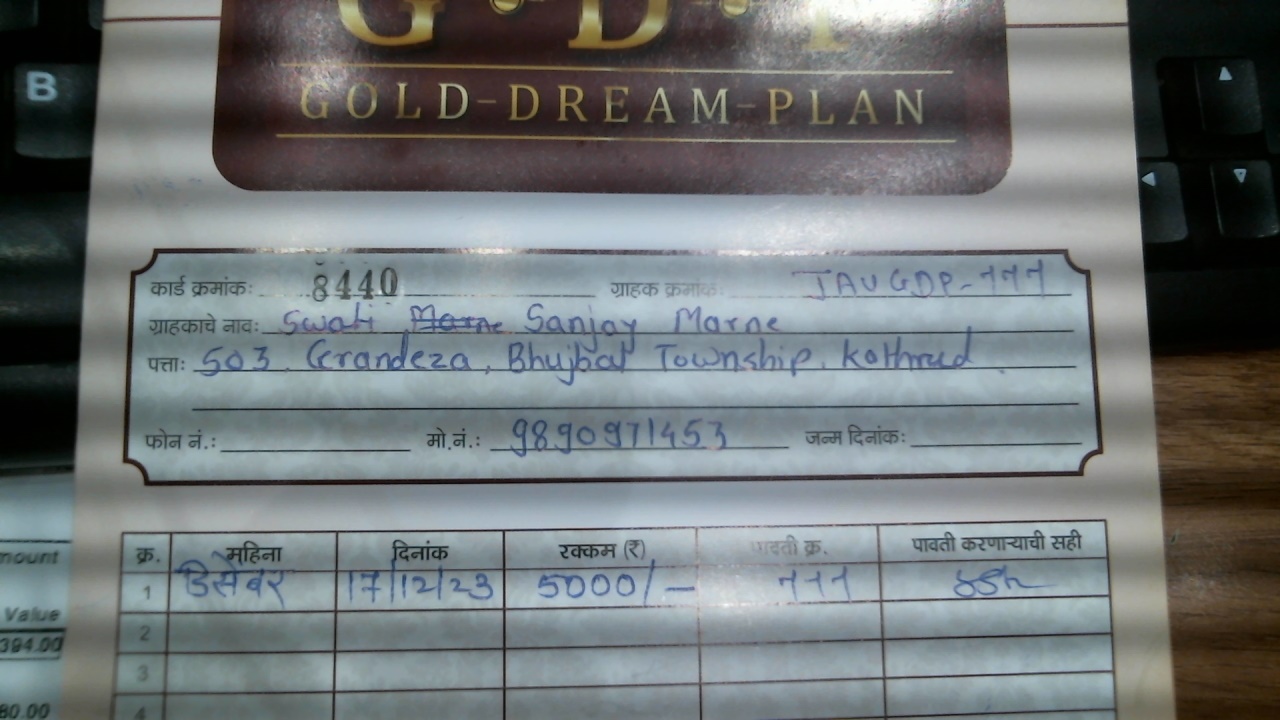 G·D·P
GOLD-DREAM-PLAN
B
कार्ड क्रमांक: 8440 ग्राहक क्रमांक: JAUGDP-111
ग्राहकाचे नाव: Swati Marne Sanjay Marne
पत्ता: 503, Grandeza, Bhujbal Township, Kothrud.
फोन नं.: मो.नं.: 9890971453 जन्म दिनांक:
क्र. महिना दिनांक रक्कम (₹) पावती क्र. पावती करणाऱ्याची सही
1 डिसेंबर 17/12/23 5000/- 111
2
3
4
mount
Value
394.00
80.00